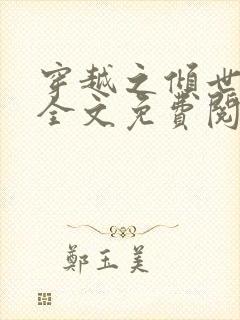 穿越之倾世
全文免費閱
鄭玉美